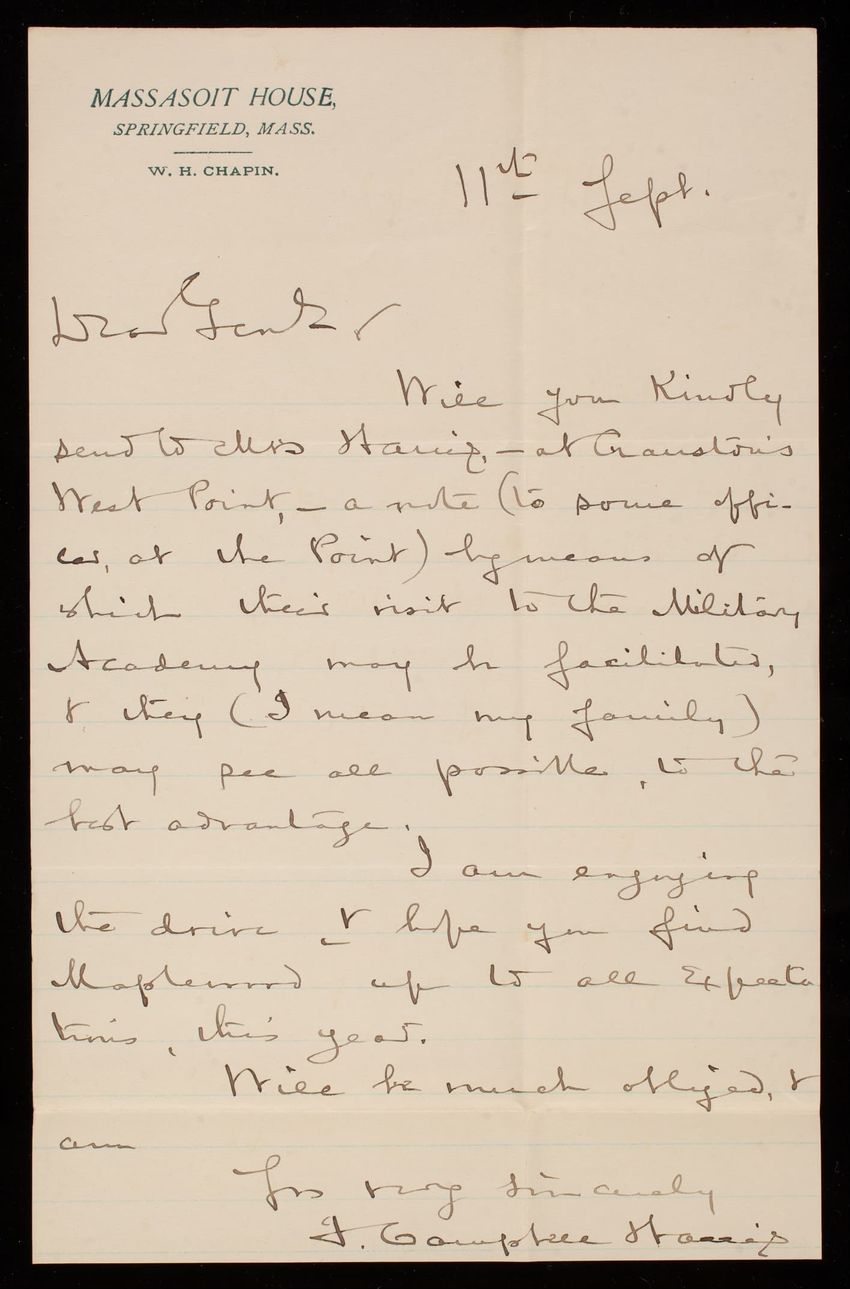 MASSASOIT HOUSE,
SPRINGFIELD, MASS.
W. H. CHAPIN.
11th Sept.
Dear
Will you Kindly
send to Mrs Harris, – at Cranston's
West Point, – a note (to some offi-
cer, at the Point) by means of
which their visit to the Military
Academy may be facilitated,
& they (I mean my family)
may see all possible, to the
best advantage.
I am enjoying
the drive & hope you find
Maplewood up to all Expecta
tions, this year.
Will be much obliged, &
am
Yrs very sincerely
Campbell Harris